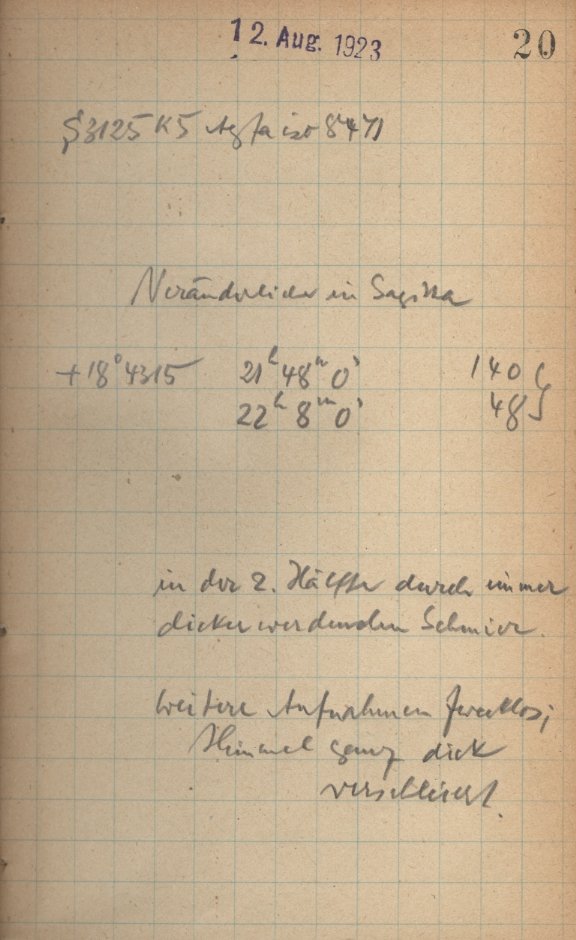 12. Aug. 1923
20
S 3125 K5 Agfa iso 8471
Veränderlicher in Sagitta
+18° 4315 21h 48m 0s 140
22h 8m 0s 48
in der 2. Hälfte durch immer
dicker werdenden Schmier.
Weitere Aufnahmen zwecklos;
Himmel ganz dick
verschleiert.